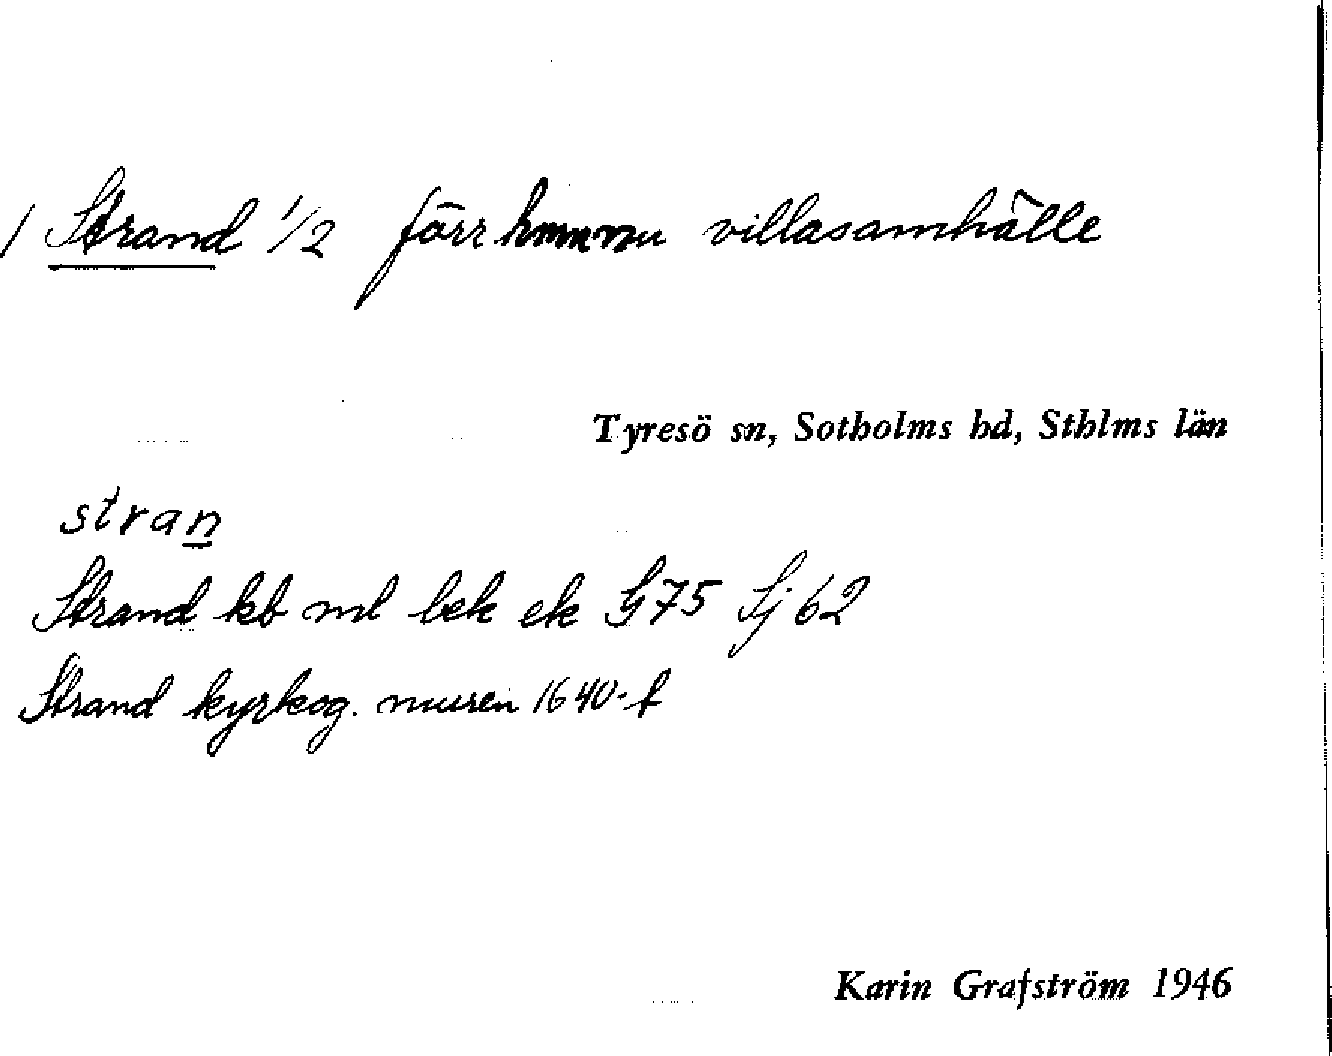 / Strand 1/2 förr hmn nu villasamhälle
Tyresö sn, Sotholms hd, Sthlms län
stran
Strand kb ml lek ek G75 Sj 62
Strand kyrkog. muren 1640-t
Karin Grafström 1946